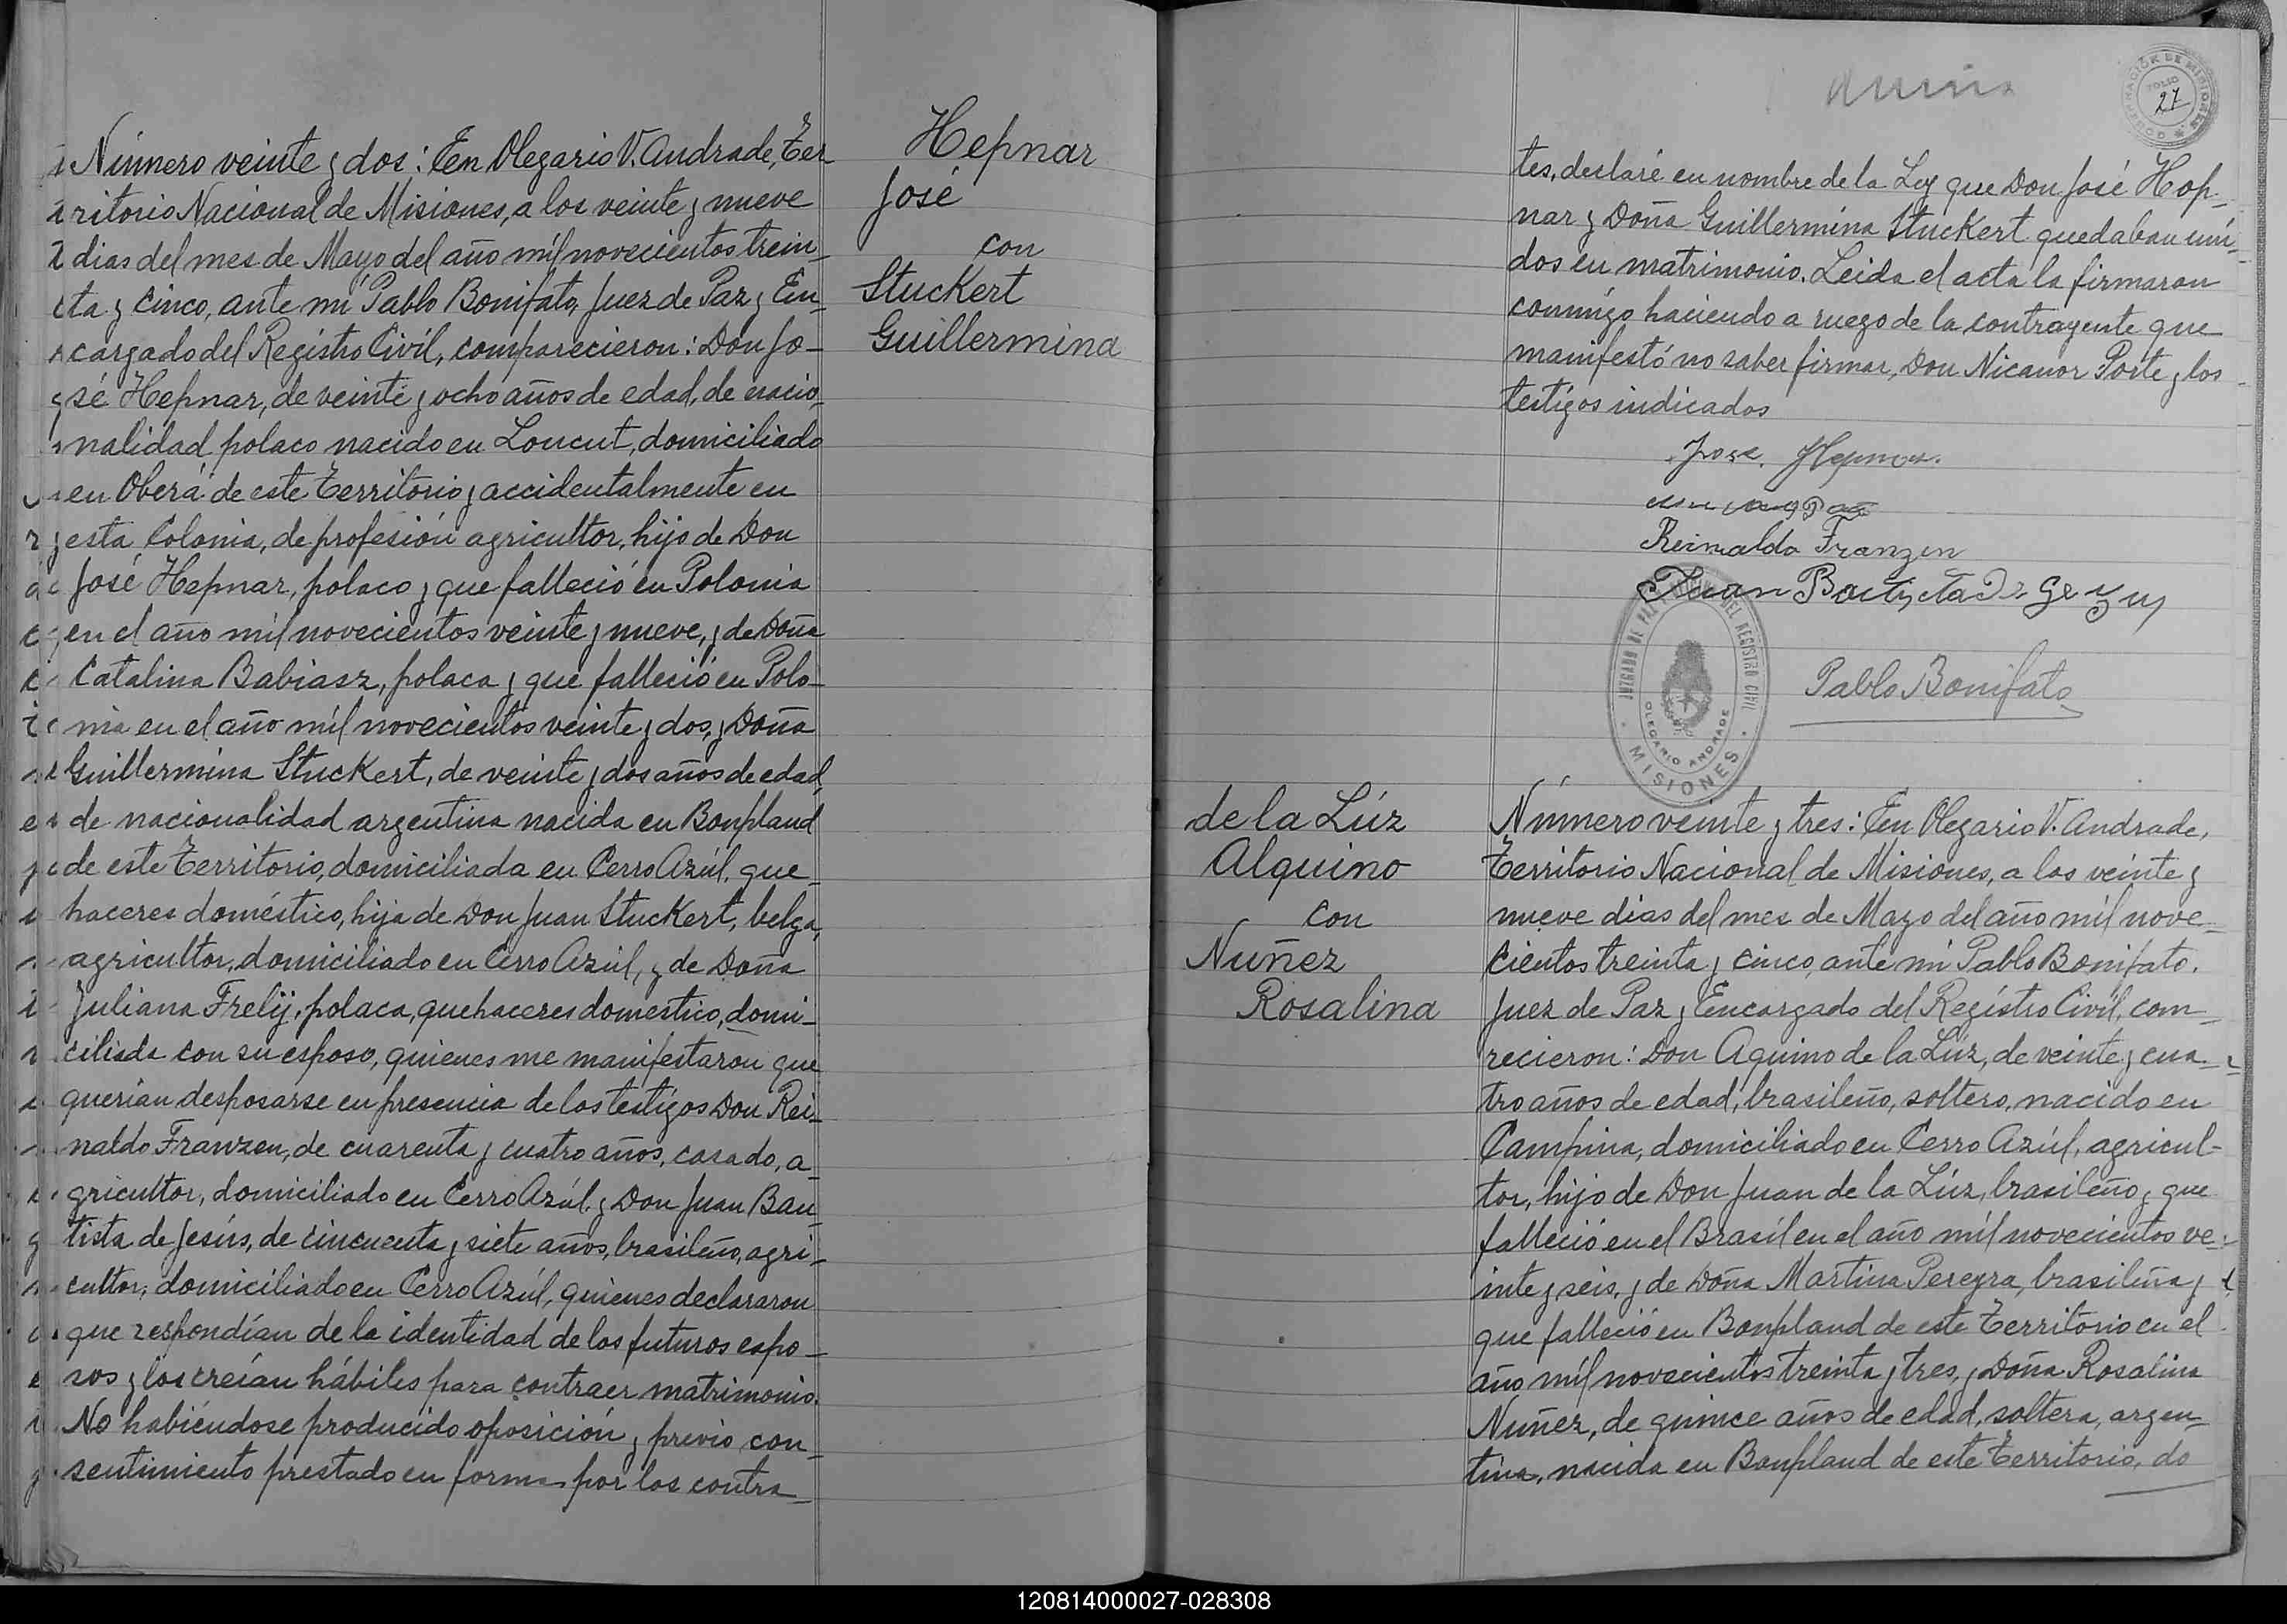 Número veinte y dos: En Olegario V. Andrade, Ter-
ritorio Nacional de Misiones, a los veinte y nueve
dias del mes de Mayo del año mil novecientos trein-
ta y cinco, ante mi Pablo Bonifato, Juez de Paz y En-
cargado del Registro Civil, comparecieron: Don Jo-
sé Hepnar, de veinte y ocho años de edad, de nacio-
nalidad polaco nacido en Loncut, domiciliado
en Oberá de este Territorio y accidentalmente en
esta Colonia, de profesión agricultor, hijo de Don
José Hepnar, polaco y que falleció en Polonia
en el año mil novecientos veinte y nueve, y de Doña
Catalina Babiasz, polaca y que falleció en Polo-
nia en el año mil novecientos veinte y dos, y Doña
Guillermina Stuckert, de veinte y dos años de edad,
de nacionalidad argentina nacida en Bonpland
de este Territorio, domiciliada en Cerro Azúl, que-
haceres doméstico, hija de Don Juan Stuckert, belga,
agricultor, domiciliado en Cerro Azúl, y de Doña
Juliana Frelij, polaca, quehaceres domestico, domi-
ciliada con su esposo, quienes me manifestaron que
querían desposarse en presencia de los testigos Don Rei-
naldo Franzen, de cuarenta y cuatro años, casado, a-
gricultor, domiciliado en Cerro Azúl y Don Juan Bau-
tista de Jesús, de cincuenta y siete años, brasileño, agri-
cultor, domiciliado en Cerro Azúl, quienes declararon
que respondían de la identidad de los futuros espo-
sos y los creían hábiles para contraer matrimonio.
No habiéndose producido oposición y previo con-
sentimiento prestado en forma por los contra-
Hepnar
José
con
Stuckert
Guillermina
27
tes, declaré en nombre de la Ley que Don José Hep-
nar y Doña Guillermina Stuckert quedaban uni-
dos en matrimonio. Leida el acta la firmaron
conmigo haciendo a ruego de la contrayente que
manifestó no saber firmar, Don Nicanor Porte y los
testigos indicados
Jose Hepnar.
Reinaldo Franzen
Juan Bautista De Gezus
JUZGADO DE PAZ DEL REGISTRO CIVIL
OLEGARIO ANDRADE
MISIONES
Pablo Bonifato
de la Lúz
Alquino
con
Nuñez
Rosalina
Número veinte y tres: En Olegario V. Andrade,
Territorio Nacional de Misiones, a los veinte y
nueve dias del mes de Mayo del año mil nove-
cientos treinta y cinco, ante mi Pablo Bonifato,
Juez de Paz y Encargado del Registro Civil, com-
recieron: Don Aquino de la Lúz, de veinte y cua-
tro años de edad, brasileño, soltero, nacido en
Campina, domiciliado en Cerro Azúl, agricul-
tor, hijo de Don Juan de la Lúz, brasileño y que
falleció en el Brasil en el año mil novecientos ve-
inte y seis, y de Doña Martina Pereyra, brasileña y
que falleció en Bonpland de este Territorio en el
año mil novecientos treinta y tres, y Doña Rosalina
Nuñez, de quince años de edad, soltera, argen-
tina, nacida en Bonpland de este Territorio, do
120814000027-028308